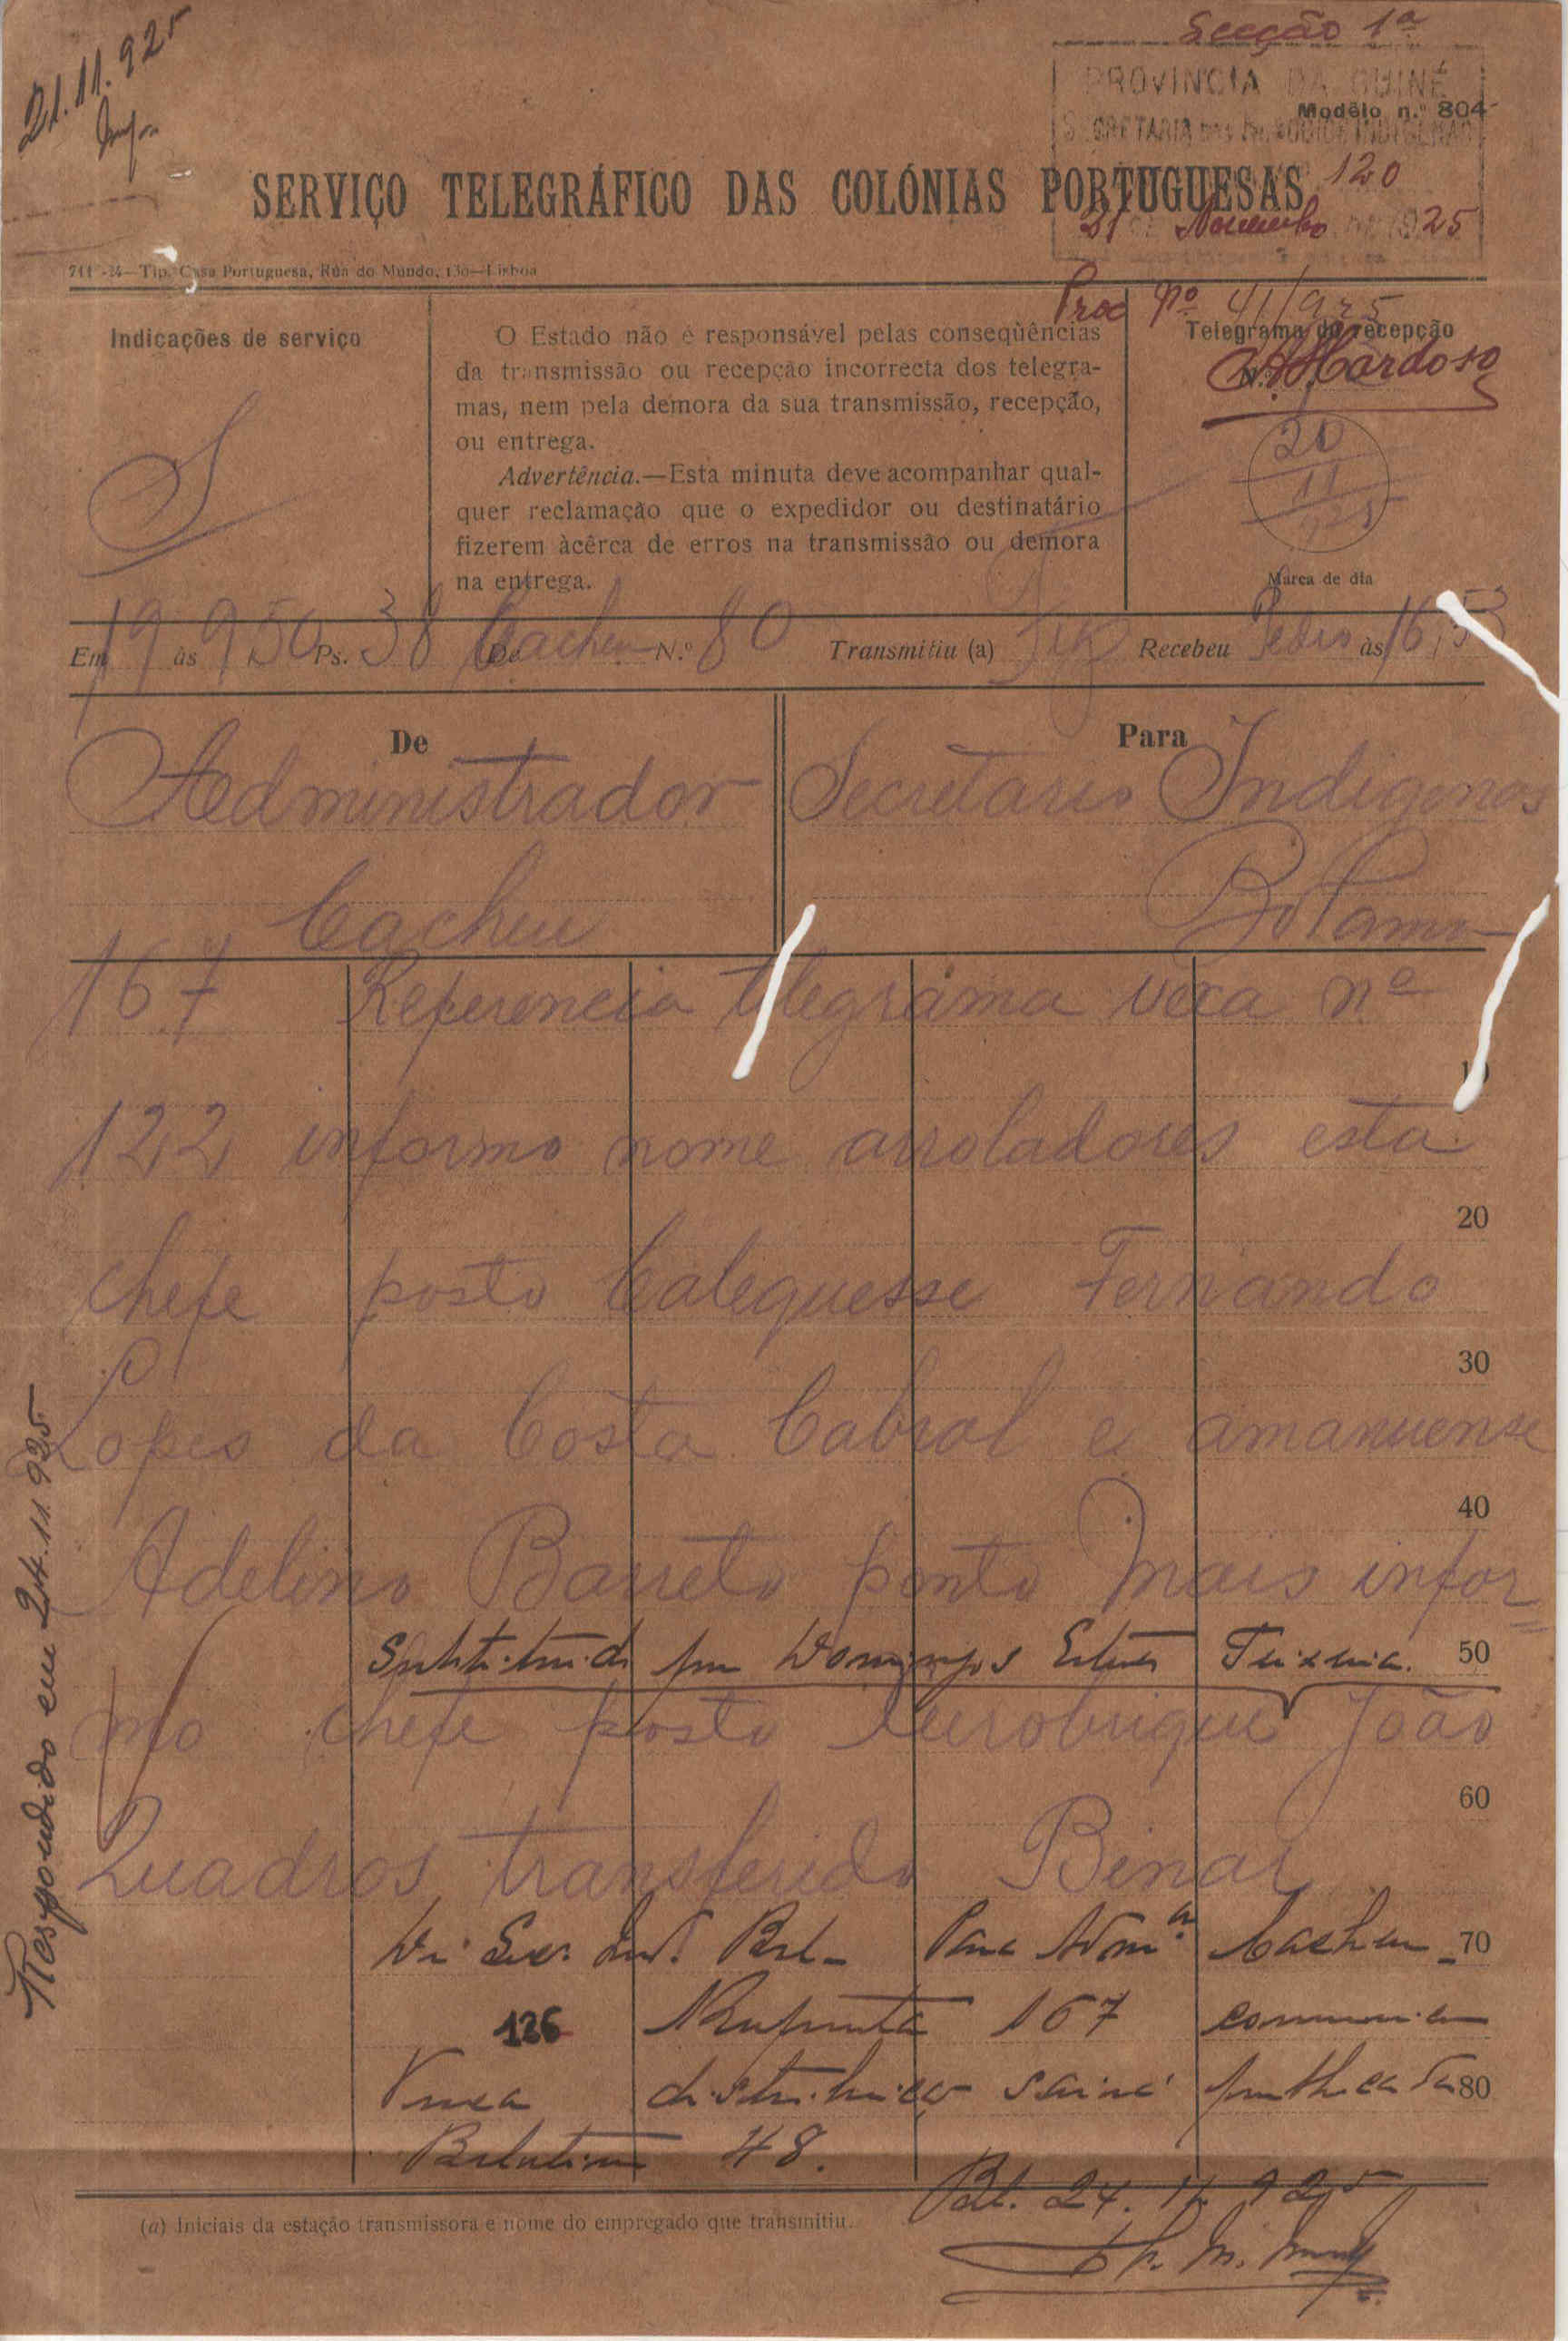 21.11.925
Secção 1ª
PROVINCIA DA GUINÉ
Modêlo n.º 804
SECRETARIA DOS NEGOCIOS INDIGENAS
SERVIÇO TELEGRÁFICO DAS COLÓNIAS PORTUGUESAS
120
21 DE Novembro DE 1925
Tip. Casa Portuguesa, Rua do Mundo, 130—Lisboa
Proc Nº 41/925
Indicações de serviço
S
O Estado não é responsável pelas conseqùências
da transmissão ou recepção incorrecta dos telegra-
mas, nem pela demora da sua transmissão, recepção,
ou entrega.
Advertência.—Esta minuta deve acompanhar qual-
quer reclamação que o expedidor ou destinatário
fizerem àcêrca de erros na transmissão ou demora
na entrega.
Telegrama de recepção
N.º
Cardoso
20
11
925
Marca de dia
Em 19 às 950 Ps. 38 De Cacheu N.º 80 Transmitiu (a) Recebeu Pedro às 16,53
De
Administrador
Cacheu
Para
Secretario Indigenas
Bolama
167 Referencia telegrama vexa nº
10
122 informo nome arroladores esta
20
chefe posto Calequesse Fernando
30
Lopes da Costa Cabral e amanuense
40
Adelino Barreto ponto Mais infor
Substituido por Domingos Teixeira. 50
mo chefe posto Churobrique João
60
Quadros transferido Binar
De Sec. Ind. Bol- Para Adm.or Cacheu - 70
126 Resposta 167 comunico
Vexa distribuição sairá publicada 80
Boletim 48.
Bol. 24.11.925
(a) Iniciais da estação transmissora e nome do empregado que transmitiu.
Respondido em 24.11.925